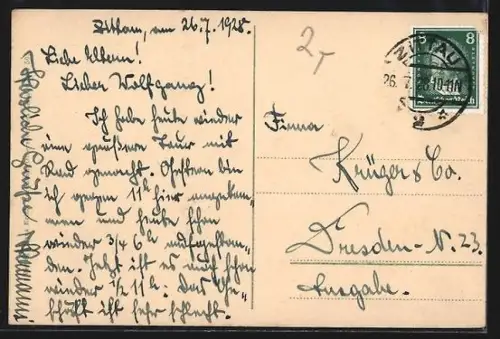 Zittau, am 26.7.1928.
Liebe Eltern!
Lieber Wolfgang!
Ich habe heute wieder
eine größere Tour mit
Rad gemacht. Gestern bin
ich gegen 11h hier angekom-
men und heute schon
wieder 3/4 6h aufgestan-
den. Jetzt ist es auch schon
wieder 1/2 11h. Das Ge-
schäft ist sehr schlecht.
Herzliche Grüße
2,-
8
ZITTAU
26.7.28.10-11N
2
Deutsches Reich
Firma
Krüger & Co.
Dresden-N. 23.
Ausgabe.